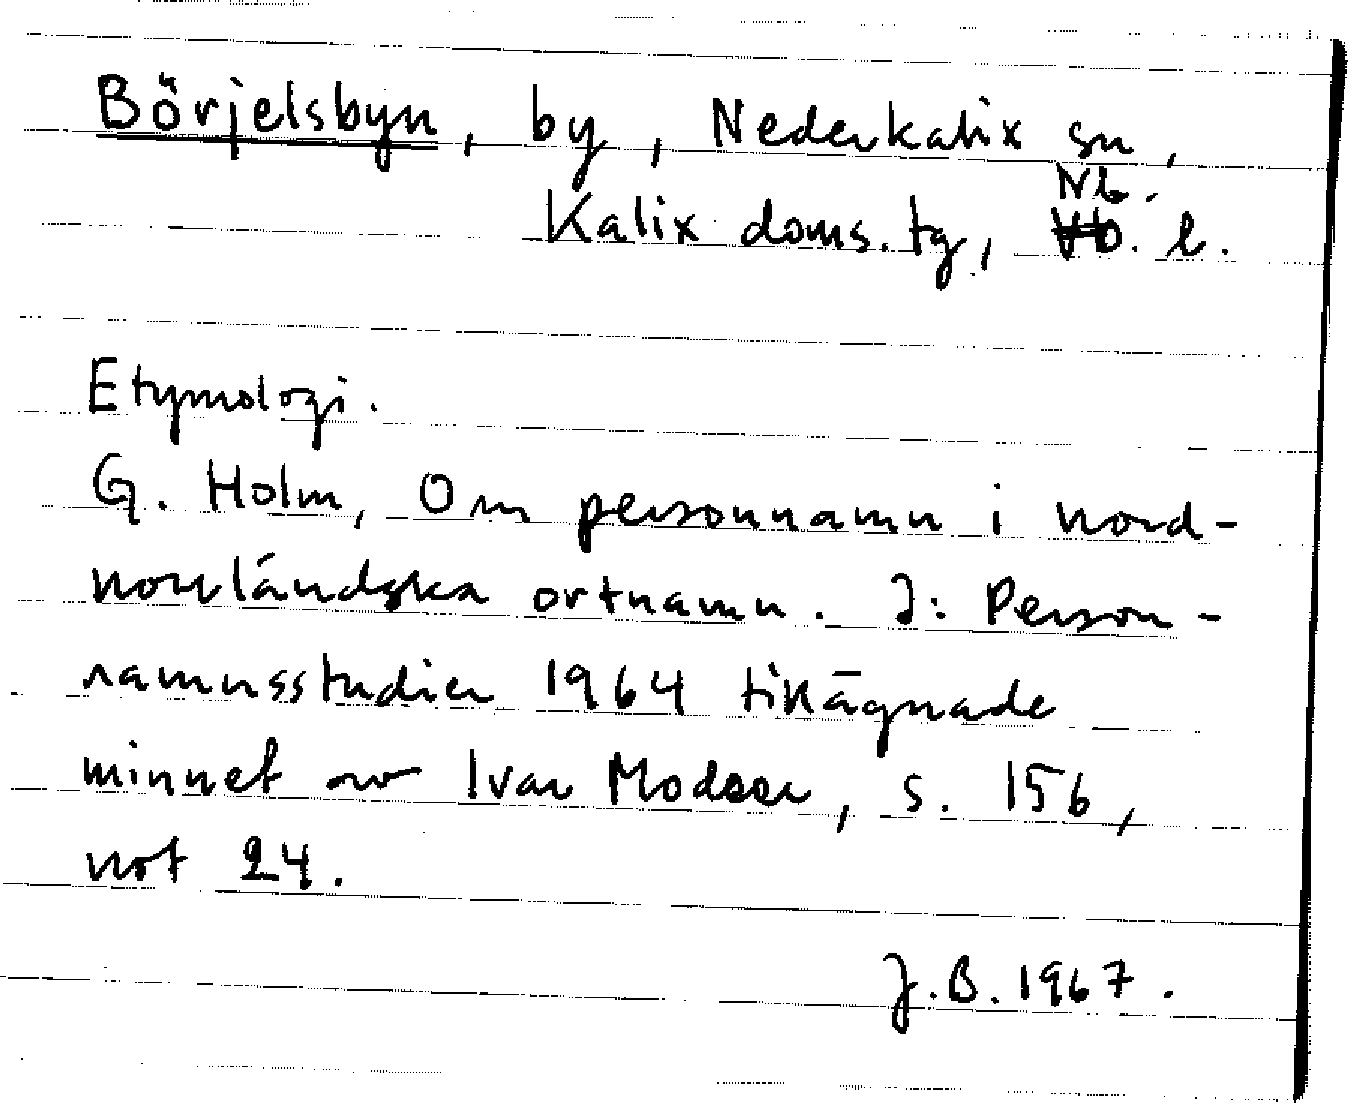 Börjelsbyn, by, Nederkalix sn,
Nb.
Kalix doms. tg, Vb. l.
Etymologi.
G. Holm, Om personnamn i nord-
norrländska ortnamn. I: Person-
namnsstudier 1964 tillägnade
minnet av Ivar Modéer, s. 156,
not 24.
J.B. 1967.